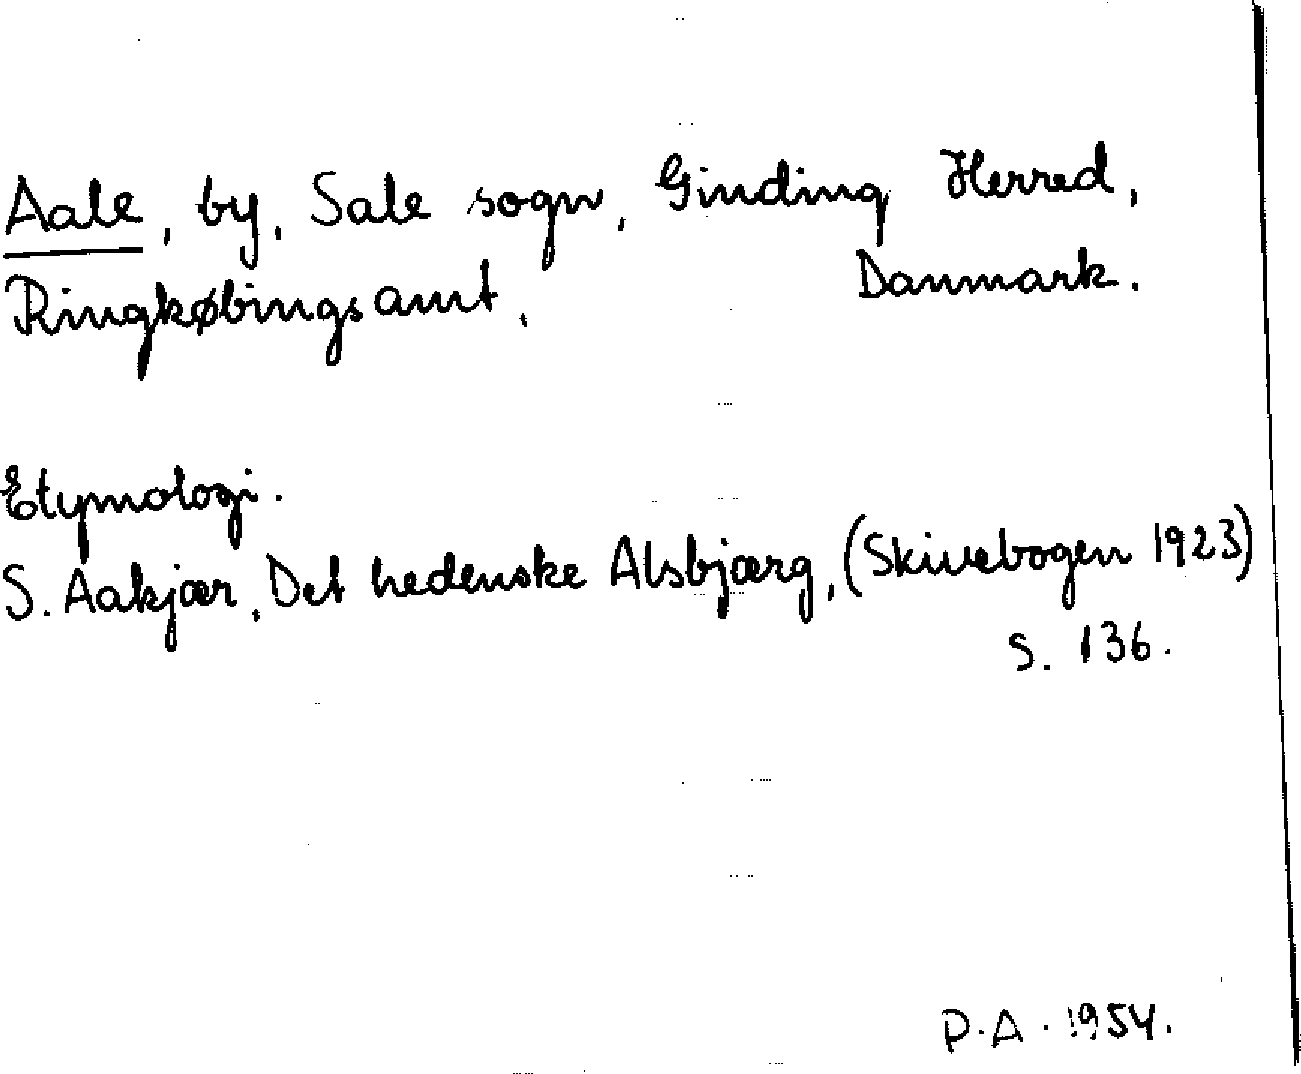 Aale, by, Sale sogn, Ginding Herred,
Ringkøbings amt, Danmark.
Etymologi.
S. Aakjær, Det hedenske Alsbjærg, (Skivebogen 1923)
S. 136.
P.A. 1954.